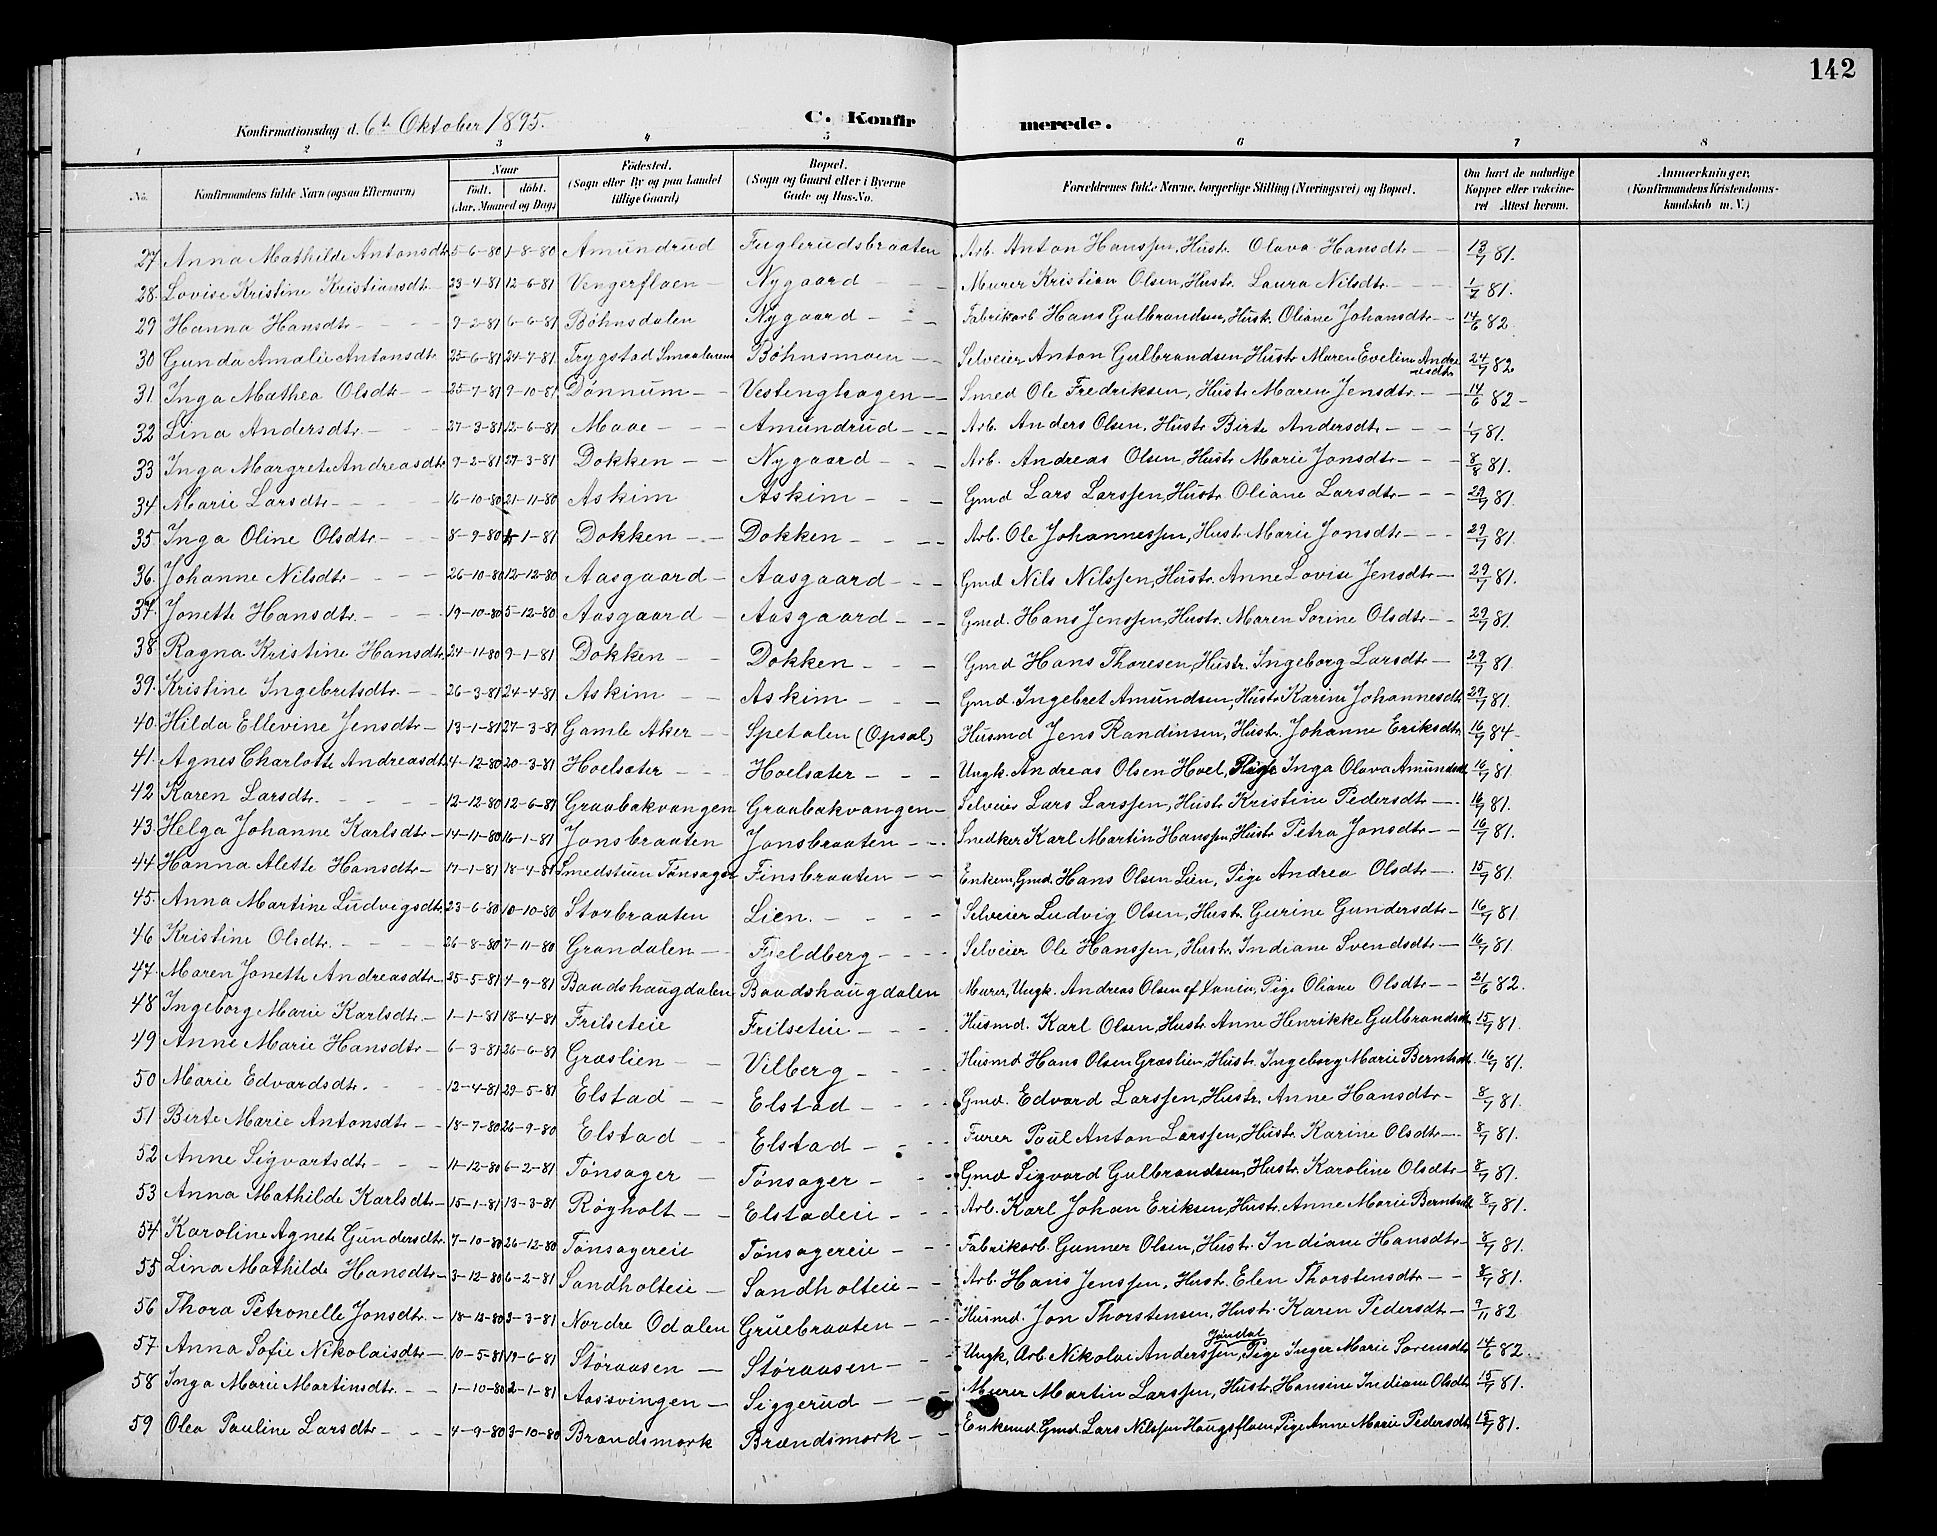 142
Konfirmationsdag d. 6te Oktober 1895. C. Konfirmerede.
1 2 3 4 5 6 7 8
No. Konfirmandens fulde Navn (ogsaa Efternavn) Naar født. døbt. (Aar, Maaned og Dag) Fødested. (Sogn eller By og paa Landet tillige Gaard) Bopæl. (Sogn og Gaard eller i Byerne Gade og Hus-No. Forældrenes fulde Navne, borgerlige Stilling (Næringsvei) og Bopæl. Om havt de naturlige Kopper eller vakcineret Attest herom. Anmærkninger, (Konfirmandens Kristendomskundskab m. V.)
27 Anna Mathilde Antonsdtr 5-6-80 1-8-80 Amundrud Fuglerudsbraaten Arb. Anton Hanssen, Hustr. Olava Hansdtr 13/7 81.
28. Lovise Kristine Kristiansdtr 23-4-81 12-6-81 Vengerflaen Nygaard Murer Kristian Olsen, Hustr. Laura Nilsdtr 1/7 81.
29 Hanna Hansdtr 9-2-81 6-6-81 Bøhnsdalen Nygaard Fabrikarb Hans Gulbrandsen, Hustr. Oliane Johansdtr 14/6 82.
30 Gunda Amalie Antonsdtr 25-6-81 24-7-81 Trygstad Smaalenene Bøhnsmoen Selveier Anton Gulbrandsen Hustr Maren Eveline Andreasdtr 24/7 82
31 Inga Mathea Olsdtr 25-7-81 9-10-81 Dønnum Vestenghagen Smed Ole Fredriksen, Hustr Maren Jensdtr. 14/6 82
32 Lina Andersdtr 27-3-81 12-6-81 Maae Amundrud Arb. Anders Olsen, Hustr Birte Andersdtr 1/7 81.
33 Inga Margrete Andreasdtr 9-2-81 27-3-81 Dokken Nygaard Arb. Andreas Olsen, Hustr Marie Jonsdtr 8/8 81.
34 Marie Larsdtr 16-10-80 21-11-80 Askim Askim Gmd Lars Larssen, Hustr Oliane Larsdtr 29/7 81.
35 Inga Oline Olsdtr 8-9-80 1-81 Dokken Dokken Arb. Ole Johannessen, Hustr Marie Jonsdtr 29/7 81.
36. Johanne Nilsdtr 26-10-80 12-12-80 Aasgaard Aasgaard Gmd Nils Nilssen, Hustr. Anne Lovise Jensdtr 29/7 81.
37. Jonette Hansdtr. 19-10-80 5-12-80 Aasgaard Aasgaard Gmd. Hans Jenssen, Hustr. Maren Sorine Olsdtr 29/7 81.
38. Ragna Kristine Hansdtr. 24-11-80 9-1-81 Dokken Dokken Gmd Hans Thoresen, Hustr. Ingeborg Larsdtr 29/7 81.
39. Kristine Ingebretsdtr. 26-3-81 24-4-81 Askim Askim Gmd. Ingebret Amundsen, Hustr Karine Johannesdtr 29/7 81.
40. Hilda Ellevine Jensdtr 13-1-81 27-3-81 Gamle Aker Spetalen (Opsal) Husmd Jens Randinsen, Hustr. Johanne Eriksdtr. 16/7 84
41. Agnes Charlotte Andreasdtr 4-12-80 20-3-81 Hoelsæter Hoelsæter Ungk. Andreas Olsen Hoel, Pige Inga Olava Amundsdtr 16/7 81.
42 Karen Larsdtr. 12-12-80 12-6-81 Graabakvangen Graabakvangen Selveier Lars Larssen, Hustr Kristine Pedersdtr 16/7 81.
43. Helga Johanne Karlsdtr 14-11-80 16-1-81 Jonsbraaten Jonsbraaten Snedker Karl Martin Hanssen, Hustr Petra Jonsdtr 16/7 81.
44 Hanna Alette Hansdtr 17-1-81 18-4-81 Smedstuen Tønsager Finsbraaten Enkem, Gmd. Hans Olsen Lien, Pige Andrea Olsdtr 15/7 81.
45. Anna Martine Ludvigsdtr. 23-6-80 10-10-80 Storbraaten Lien. Selveier Ludvig Olsen, Hustr. Gurine Gundersdtr 16/7 81.
46 Kristine Olsdtr. 26-8-80 7-11-80 Grandalen Fjeldberg Selveier Ole Hanssen, Hustr. Indiane Svendsdtr 16/7 81
47. Maren Jonette Andreasdtr 25-5-81 4-9-81 Baadshaugdalen Baadshaugdalen Murer, Ungk. Andreas Olsen, Pige Oliane Olsdtr 21/6 82.
48 Ingeborg Marie Karlsdtr. 1-1-81 18-4-81 Frilseteie Frilseteie Husmd. Karl Olsen, Hustr. Anne Henrikke Gulbrandsdtr 15/7 81.
49 Anne Marie Hansdtr 6-3-81 26-6-81 Græslien Vilberg Husmd Hans Olsen Græslien, Hustr. Ingeborg Marie Berntsdtr 16/7 81.
50 Marie Edvardsdtr. 12-4-81 29-5-81 Elstad Elstad Gmd. Edvard Larssen, Hustr. Anne Hansdtr 8/7 81.
51 Birte Marie Antonsdtr 18-7-80 26-9-80 Elstad Elstad Furer Paul Anton Larssen, Hustr. Karine Olsdtr 8/7 81.
52 Anne Sigvartsdtr 11-12-80 6-2-81 Tønsager Tønsager Gmd Sigvard Gulbrandsen, Hustr. Karoline Olsdtr 8/7 81.
53 Anna Mathilde Karlsdtr 15-1-81 13-3-81 Røgholt Elstadeie Arb. Karl Johan Eriksen, Hustr. Anne Marie Berntsdtr 8/7 81.
54 Karoline Agnete Gundersdtr. 7-10-80 26-12-80 Tønsagereie Tønsagereie Fabrikarb. Gunner Olsen, Hustr. Indiane Hansdtr 8/7 81.
55 Lina Mathilde Hansdtr 3-12-80 6-2-81 Sandholteie Sandholteie Arb. Hans Jenssen, Hustr. Elen Thorstensdtr 8/7 81.
56 Thora Petronelle Jonsdtr. 18-12-80 3-3-81 Nordre Odalen Gruebraaten Husmd. Jon Thorstensen, Hustr. Karen Pedersdtr 9/11 82
57. Anna Sofie Nikolaisdtr 10-5-81 19-6-81 Støraasen Støraasen Ungk, Arb. Nikolai Anderssen Jøndal, Pige Inger Marie Sørensdtr 14/6 82.
58 Inga Marie Martinsdtr. 1-10-80 2-1-81 Aassvingen Siggerud Murer Martin Larssen, Hustr. Hansine Indiane Olsdtr 15/7 81.
59 Olea Pauline Larsdtr 4-9-80 3-10-80 Brandsmork Brændsmork Enkemd. Gmd. Lars Nilssen Haugsflaen, Pige Anne Marie Pedersdtr 15/7 81.